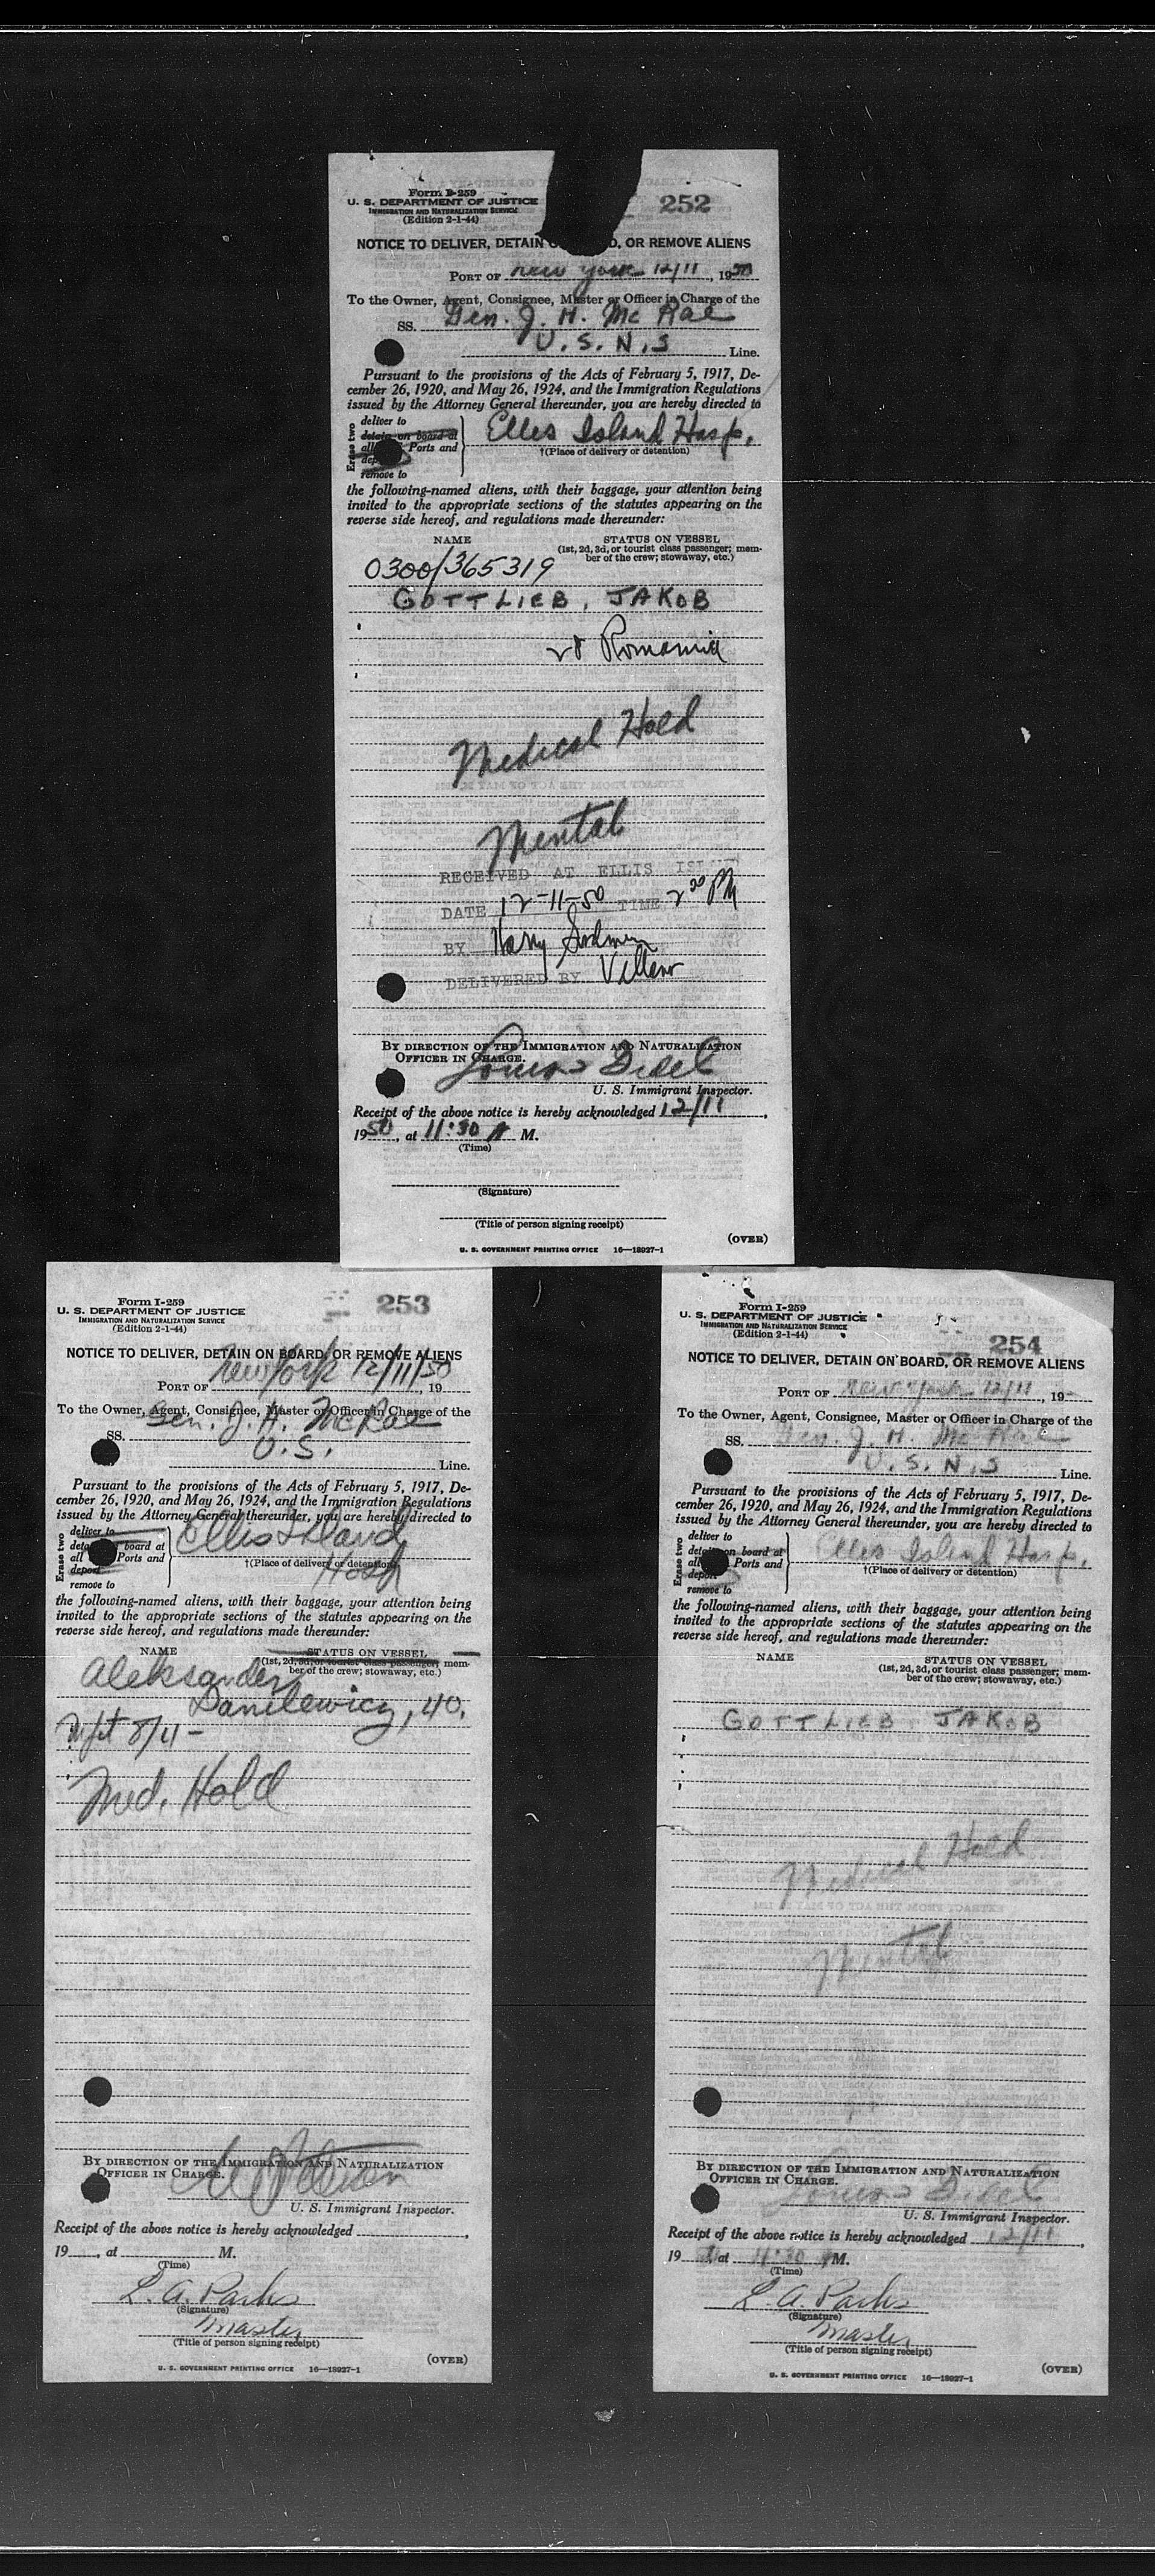 Form I-259
U. S. DEPARTMENT OF JUSTICE
IMMIGRATION AND NATURALIZATION SERVICE
(Edition 2-1-44)
252
NOTICE TO DELIVER, DETAIN OR REMOVE ALIENS
PORT OF New York 12/11, 1950
To the Owner, Agent, Consignee, Master or Officer in Charge of the
SS. Gen. J. H. Mc Rae
U. S. N. S Line.
Pursuant to the provisions of the Acts of February 5, 1917, De-
cember 26, 1920, and May 26, 1924, and the Immigration Regulations
issued by the Attorney General thereunder, you are hereby directed to
Erase two
deliver to
detain on board at
all Ports and
remove to
Ellis Island Hosp.
†(Place of delivery or detention)
the following-named aliens, with their baggage, your attention being
invited to the appropriate sections of the statutes appearing on the
reverse side hereof, and regulations made thereunder:
NAME STATUS ON VESSEL
(1st, 2d, 3d, or tourist class passenger; mem-
ber of the crew; stowaway, etc.)
0300/365319
GOTTLIEB, JAKOB
28 Romania
Medical Hold
Mental
RECEIVED AT ELLIS ISLAND
DATE 12-11-50 TIME 2 30 PM
BY Harry
DELIVERED BY
BY DIRECTION OF THE IMMIGRATION AND NATURALIZATION
OFFICER IN CHARGE.
U. S. Immigrant Inspector.
Receipt of the above notice is hereby acknowledged 12/11,
1950, at 11:30 A M.
(Time)
(Signature)
(Title of person signing receipt)
(OVER)
U. S. GOVERNMENT PRINTING OFFICE 16—18927-1
Form I-259
U. S. DEPARTMENT OF JUSTICE
IMMIGRATION AND NATURALIZATION SERVICE
(Edition 2-1-44)
253
NOTICE TO DELIVER, DETAIN ON BOARD, OR REMOVE ALIENS
PORT OF New York 12/11/50, 19
To the Owner, Agent, Consignee, Master or Officer in Charge of the
SS. Gen. J. H. McRae
U. S. Line.
Pursuant to the provisions of the Acts of February 5, 1917, De-
cember 26, 1920, and May 26, 1924, and the Immigration Regulations
issued by the Attorney General thereunder, you are hereby directed to
Erase two
deliver to
detain on board at
all Ports and
deport
remove to
Ellis Island
Hosp
†(Place of delivery or detention)
the following-named aliens, with their baggage, your attention being
invited to the appropriate sections of the statutes appearing on the
reverse side hereof, and regulations made thereunder:
NAME STATUS ON VESSEL
(1st, 2d, 3d, or tourist class passenger; mem-
ber of the crew; stowaway, etc.)
Aleksander
Danilewicz, 40,
8/4 -
Med. Hold
BY DIRECTION OF THE IMMIGRATION AND NATURALIZATION
OFFICER IN CHARGE.
U. S. Immigrant Inspector.
Receipt of the above notice is hereby acknowledged
19, at M.
(Time)
L. A. Parks
(Signature)
Master
(Title of person signing receipt)
(OVER)
U. S. GOVERNMENT PRINTING OFFICE 16—18927-1
Form I-259
U. S. DEPARTMENT OF JUSTICE
IMMIGRATION AND NATURALIZATION SERVICE
(Edition 2-1-44)
254
NOTICE TO DELIVER, DETAIN ON BOARD, OR REMOVE ALIENS
PORT OF New York 12/11, 19
To the Owner, Agent, Consignee, Master or Officer in Charge of the
SS. Gen. J. H. Mc Rae
U. S. N. S Line.
Pursuant to the provisions of the Acts of February 5, 1917, De-
cember 26, 1920, and May 26, 1924, and the Immigration Regulations
issued by the Attorney General thereunder, you are hereby directed to
Erase two
deliver to
detain on board at
all Ports and
deport
remove to
Ellis Island Hosp.
†(Place of delivery or detention)
the following-named aliens, with their baggage, your attention being
invited to the appropriate sections of the statutes appearing on the
reverse side hereof, and regulations made thereunder:
NAME STATUS ON VESSEL
(1st, 2d, 3d, or tourist class passenger; mem-
ber of the crew; stowaway, etc.)
GOTTLIEB JAKOB
Medical Hold
Mental
BY DIRECTION OF THE IMMIGRATION AND NATURALIZATION
OFFICER IN CHARGE.
U. S. Immigrant Inspector.
Receipt of the above notice is hereby acknowledged 12/11,
19, at 11:30 M.
(Time)
L. A. Parks
(Signature)
Master
(Title of person signing receipt)
(OVER)
U. S. GOVERNMENT PRINTING OFFICE 16—18927-1